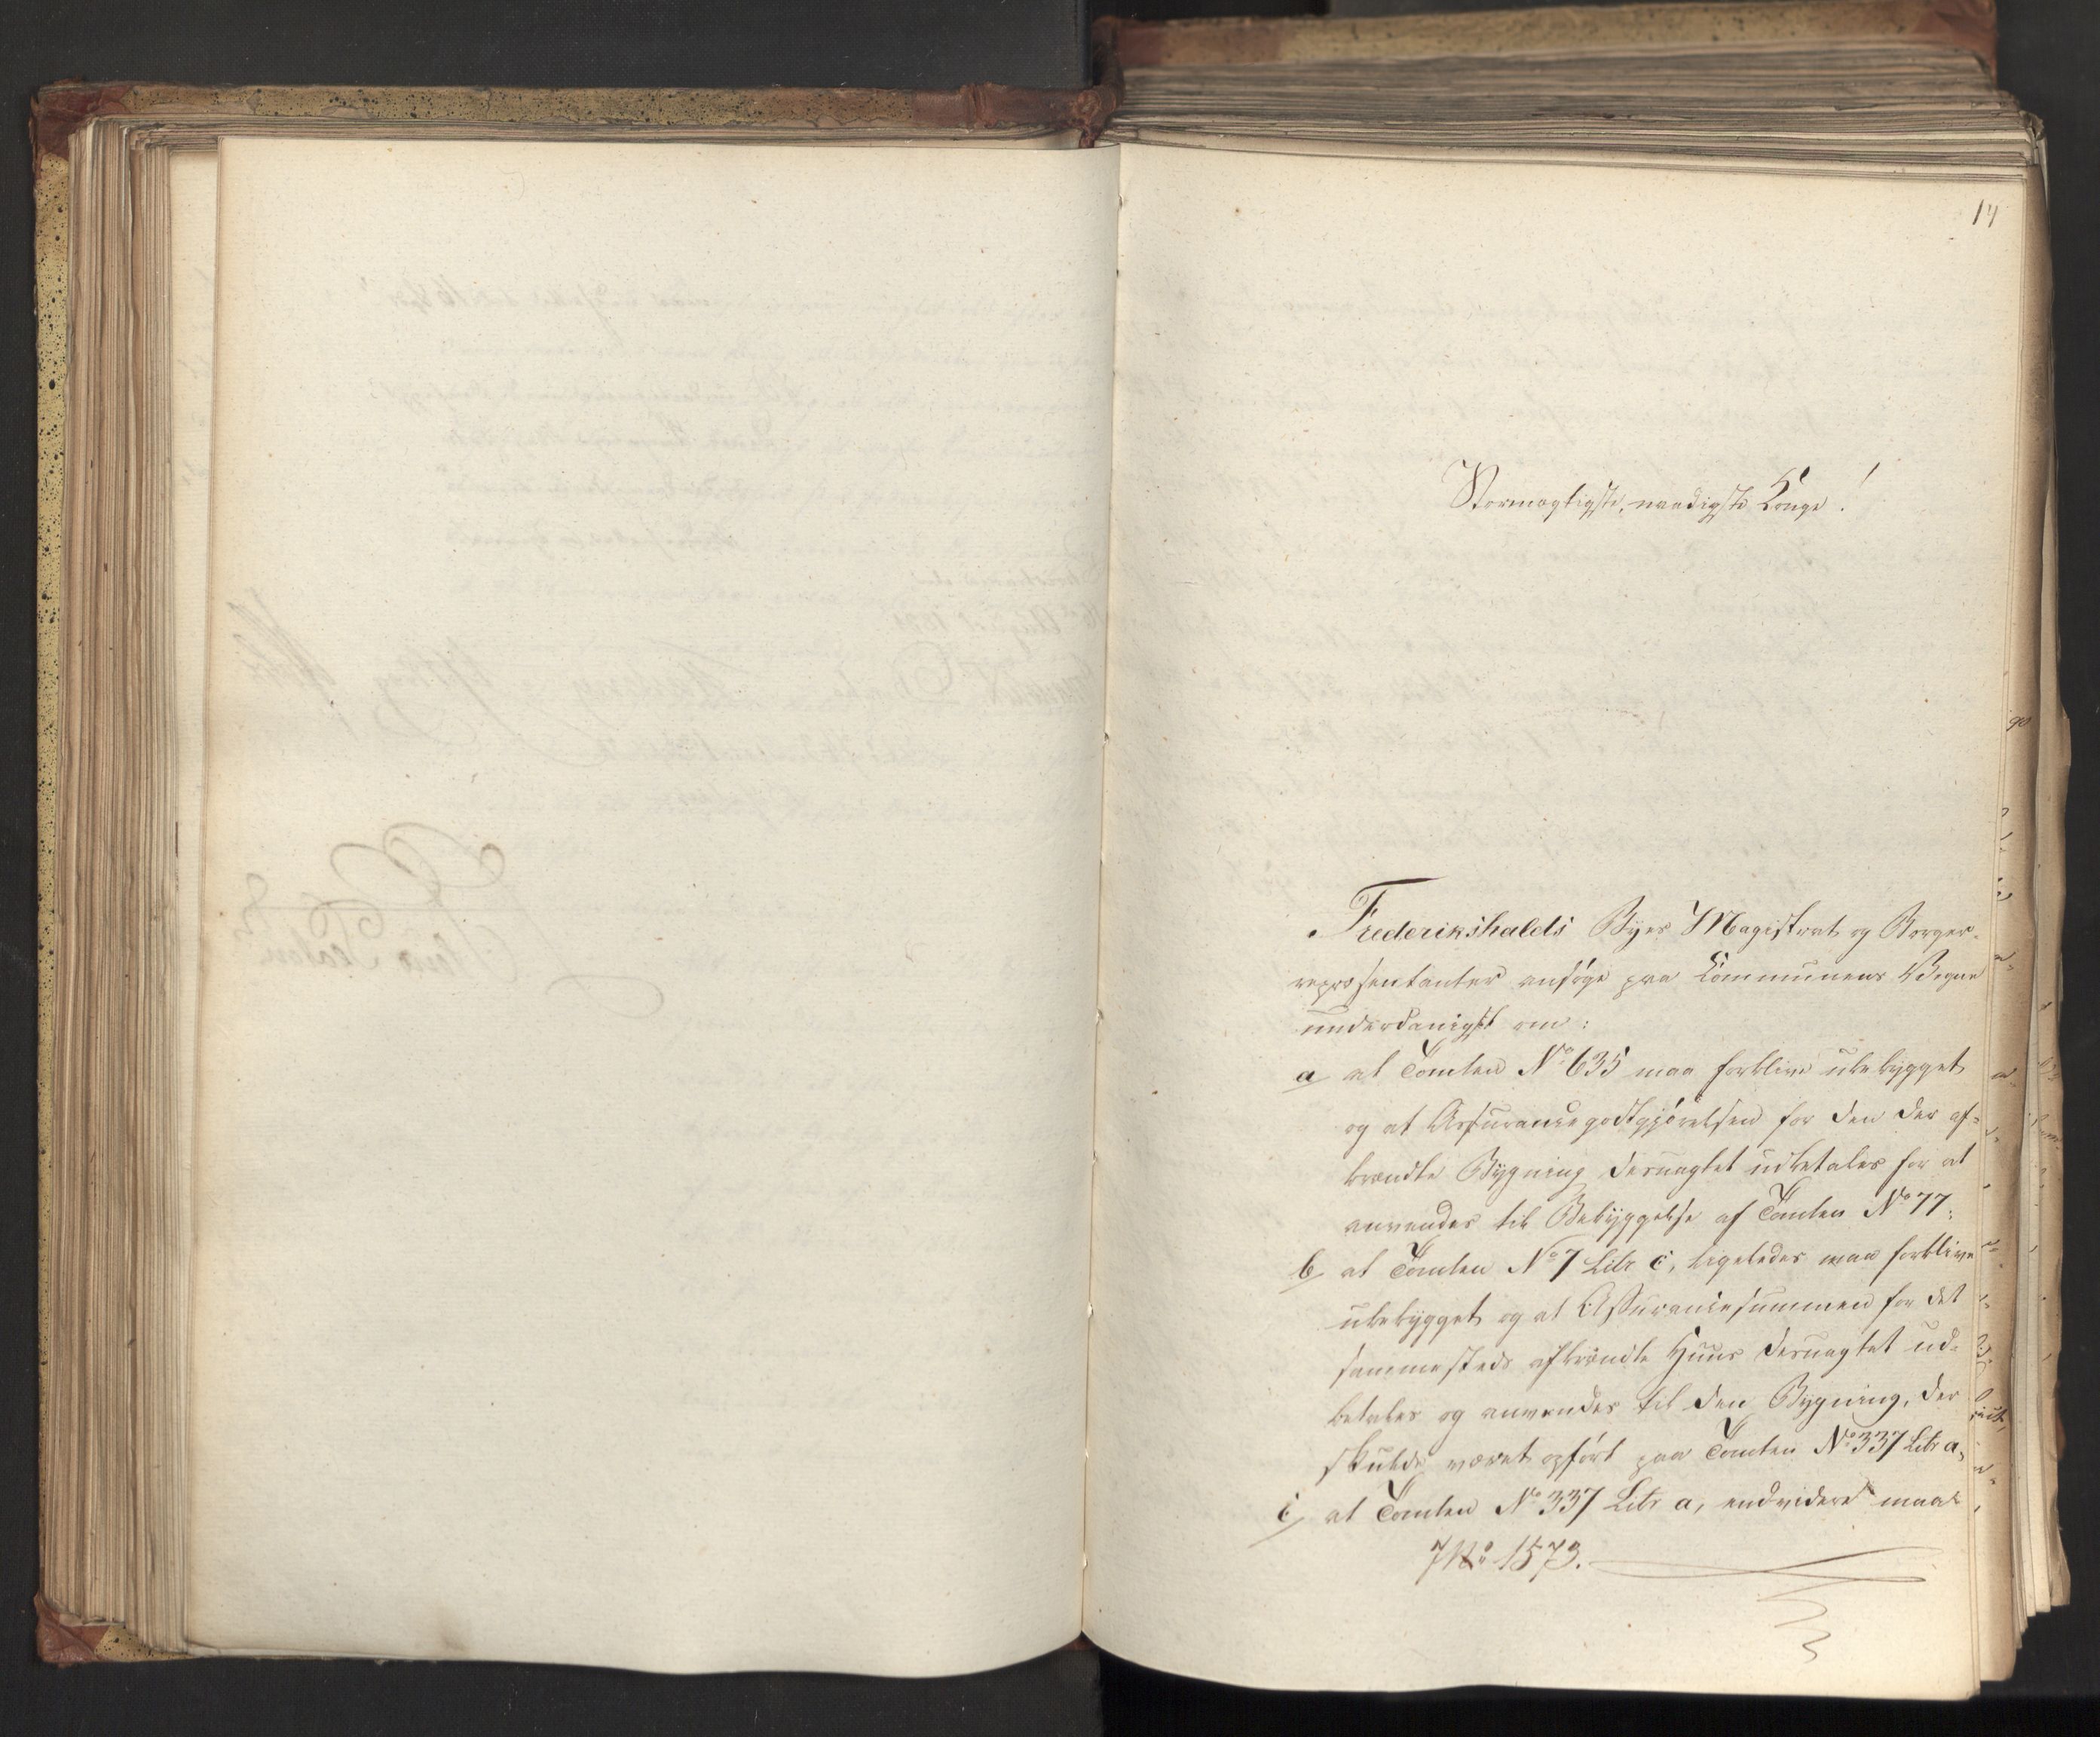 14
Stormægtigste, naadigste Konge!
Frederikshalds Byes Magistrat og Borger-
repræsentanter ansøge paa Communens Vegne
underdanigst om:
a/ at Tomten No 635 maa forblive ubebygget
og at Assurancegodtgjørelsen for den der af-
brændte Bygning desuagtet udbetales for at
anvendes til Bebyggelse af Tomten No 77;
b/ at Tomten No 7 Litr c, ligeledes maa forblive
ubebygget og at Assurancesummen for det
sammesteds afbrændte Huus desuagtet ud-
betales og anvendes til den Bygning, der
skulde været opført paa Tomten No 337 Litr a,
c/ at Tomten No 337 Litr a, endvidere maae
JNo 1573.